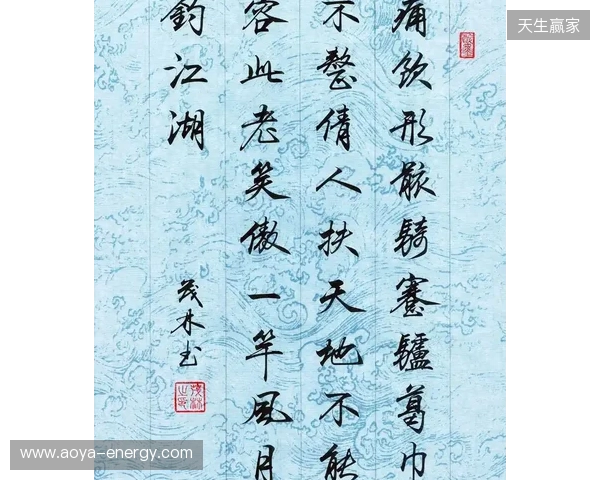 天生赢家
痛飲形骸騎蹇驢葛巾
不整倩人扶天地不能
容此老笑傲一竿風月
釣江湖
茂林书
www.aoya-energy.com